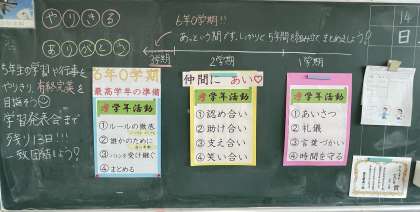 やりきる
ありがとう
5年生の学習や行事を
やりきり、有終完美を
目ざそう
学習発表会まで
残り13日!!!
一致団結しよう?
6年0学期!!
あっという間です、しっかりと5年間を締め立てまとめましょう?
3学期
2学期
1学期
6年0学期
最高学年の準備
学年活動
①ルールの徹底
②誰かのために
③バトンを受け継ぐ
④まとめる
仲間に あい♡
学年活動
①認め合い
②助け合い
③支え合い
④笑い合い
学年活動
①あいさつ
②礼儀
③言葉づかい
④時間を守る
日